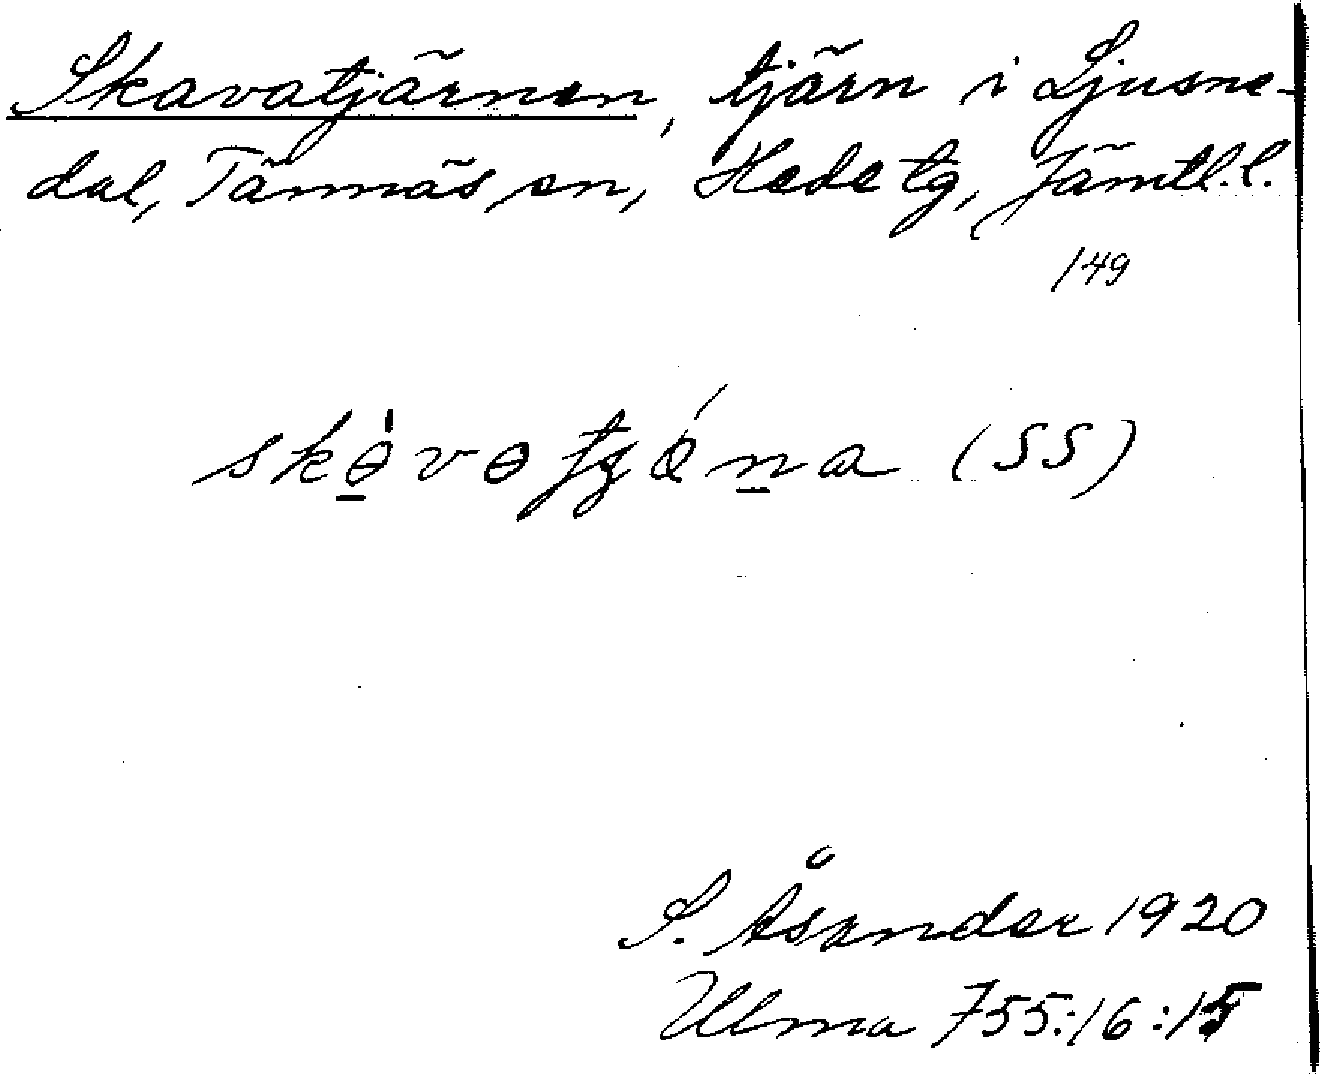 Skavatjärnen, tjärn i Ljusne-
dal, Tännäs sn, Hede tg, Jämtl. l.
149
(SS)
S. Åsander 1920
Ulma 755:16:15